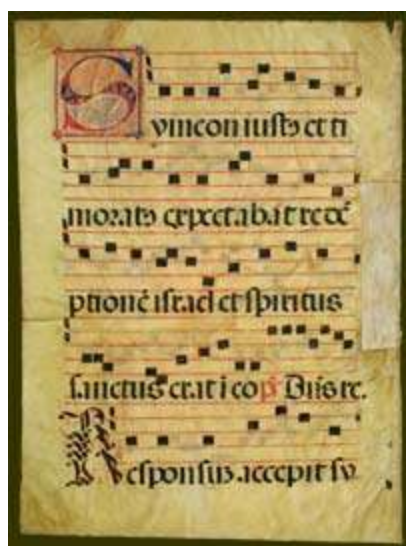 Symeon iustꝰ et ti
moratꝰ expectabat redē
ptionē israel et spiritus
sanctus erat i eo p̄ Dñs re.
Responsuz accepit sy